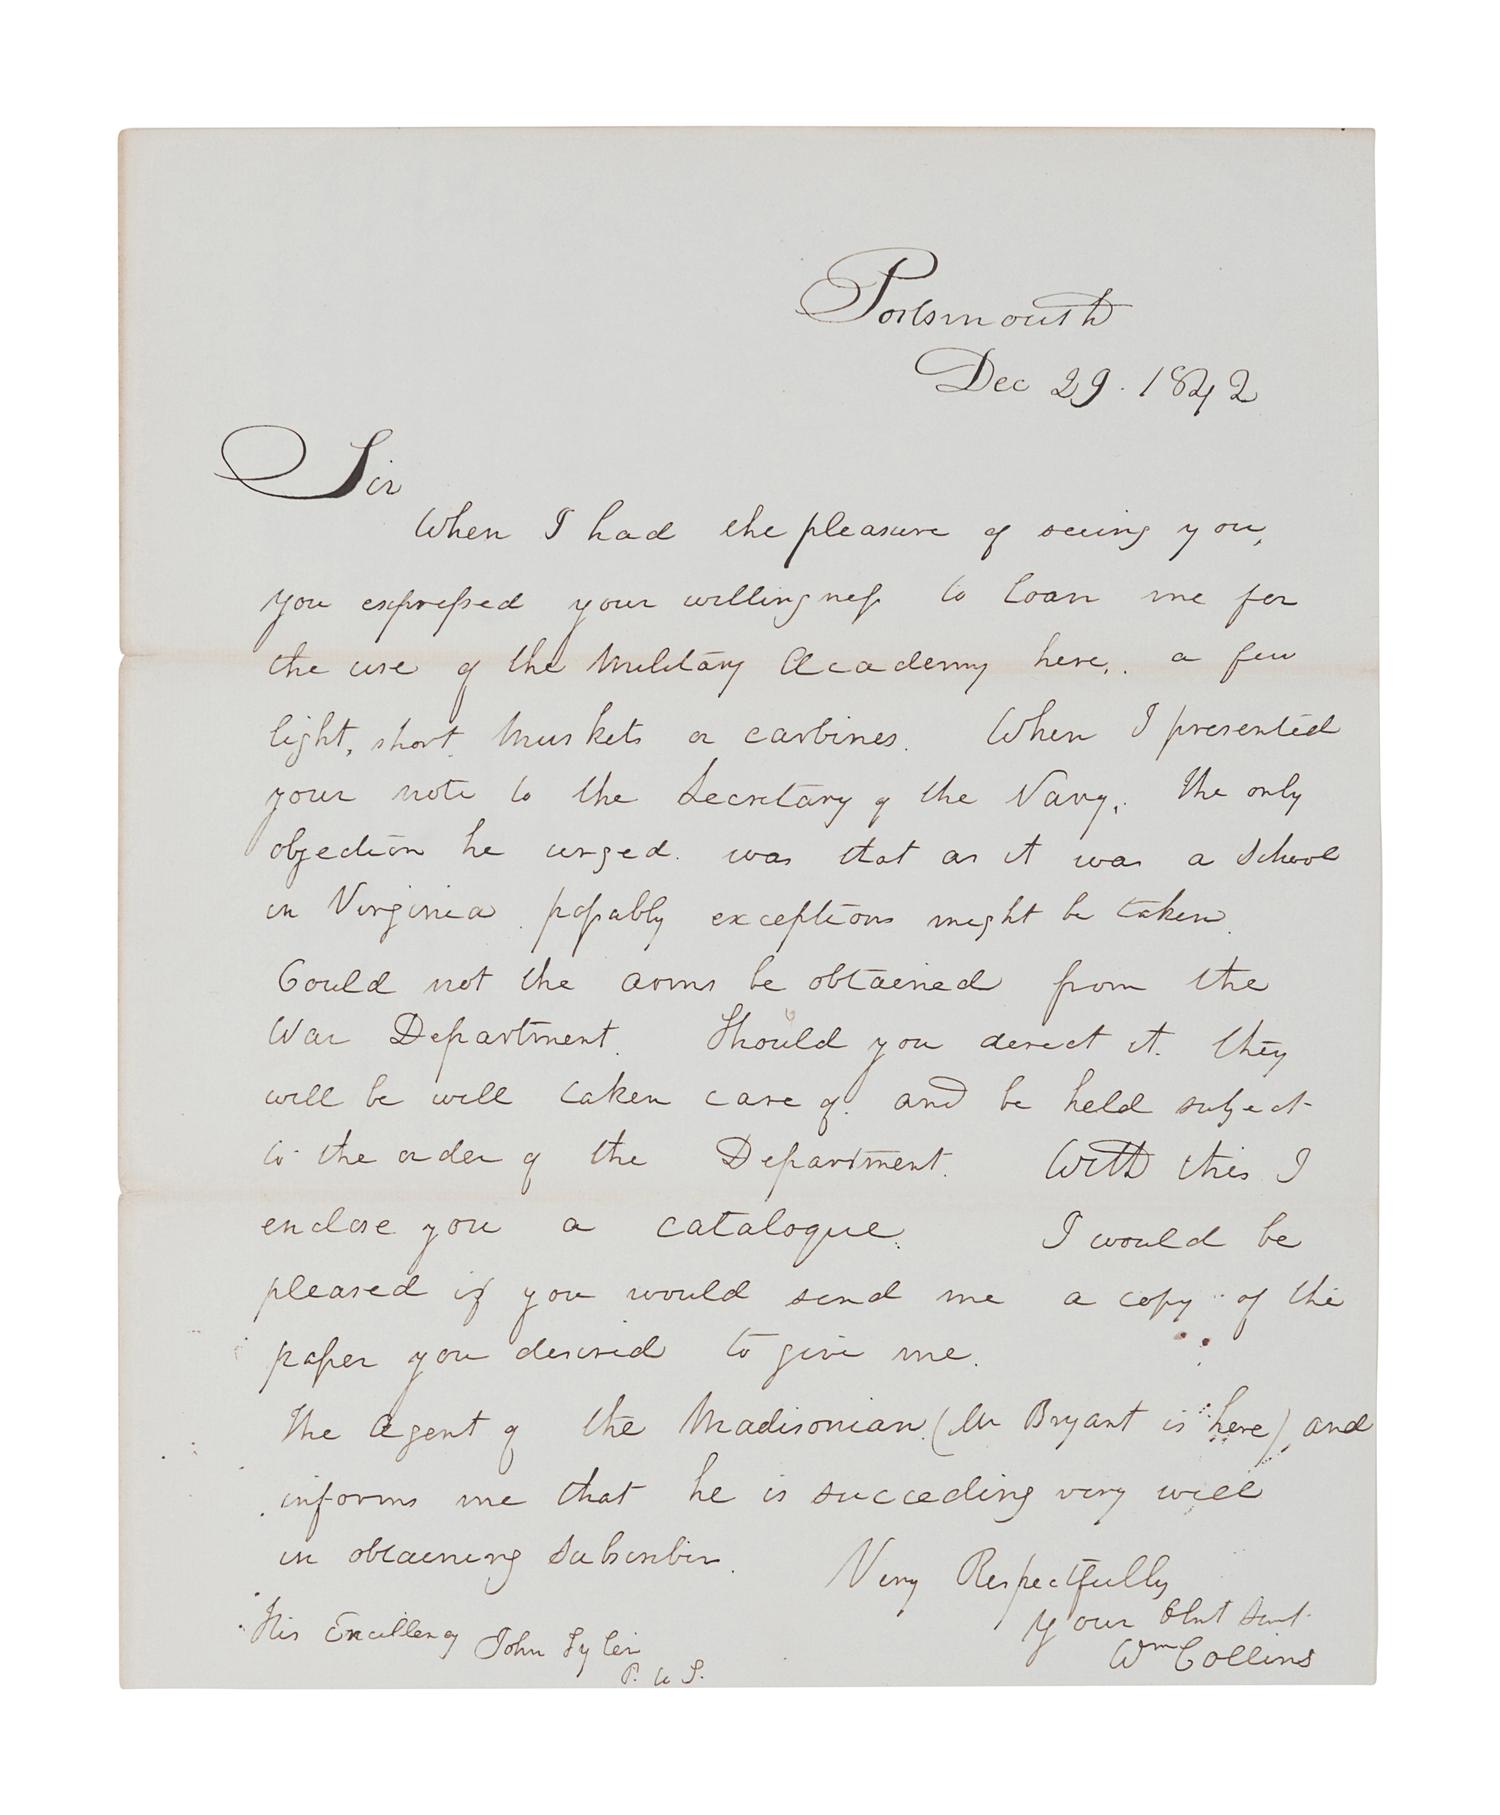 Portsmouth
Dec 29. 1842
Sir
When I had the pleasure of seeing you,
you expressed your willingness to loan me for
the use of the Military Academy here, a few
light, short Muskets or carbines. When I presented
your note to the Secretary of the Navy, the only
objection he urged was that as it was a School
in Virginia possably exceptions might be taken.
Could not the arms be obtained from the
War Department. Should you derect it. they
will be well taken care of. and be held subject
to the order of the Department. With this I
enclose you a catalogue. I would be
pleased if you would send me a copy of the
paper you desired to give me.
The Agent of the Madisonian (Mr Bryant is here), and
informs me that he is succeding very well
in obtaining Subscribers.
Very Respectfully
Your Obnt Servt
Wm Collins
His Excellency John Tyler
P. U S.